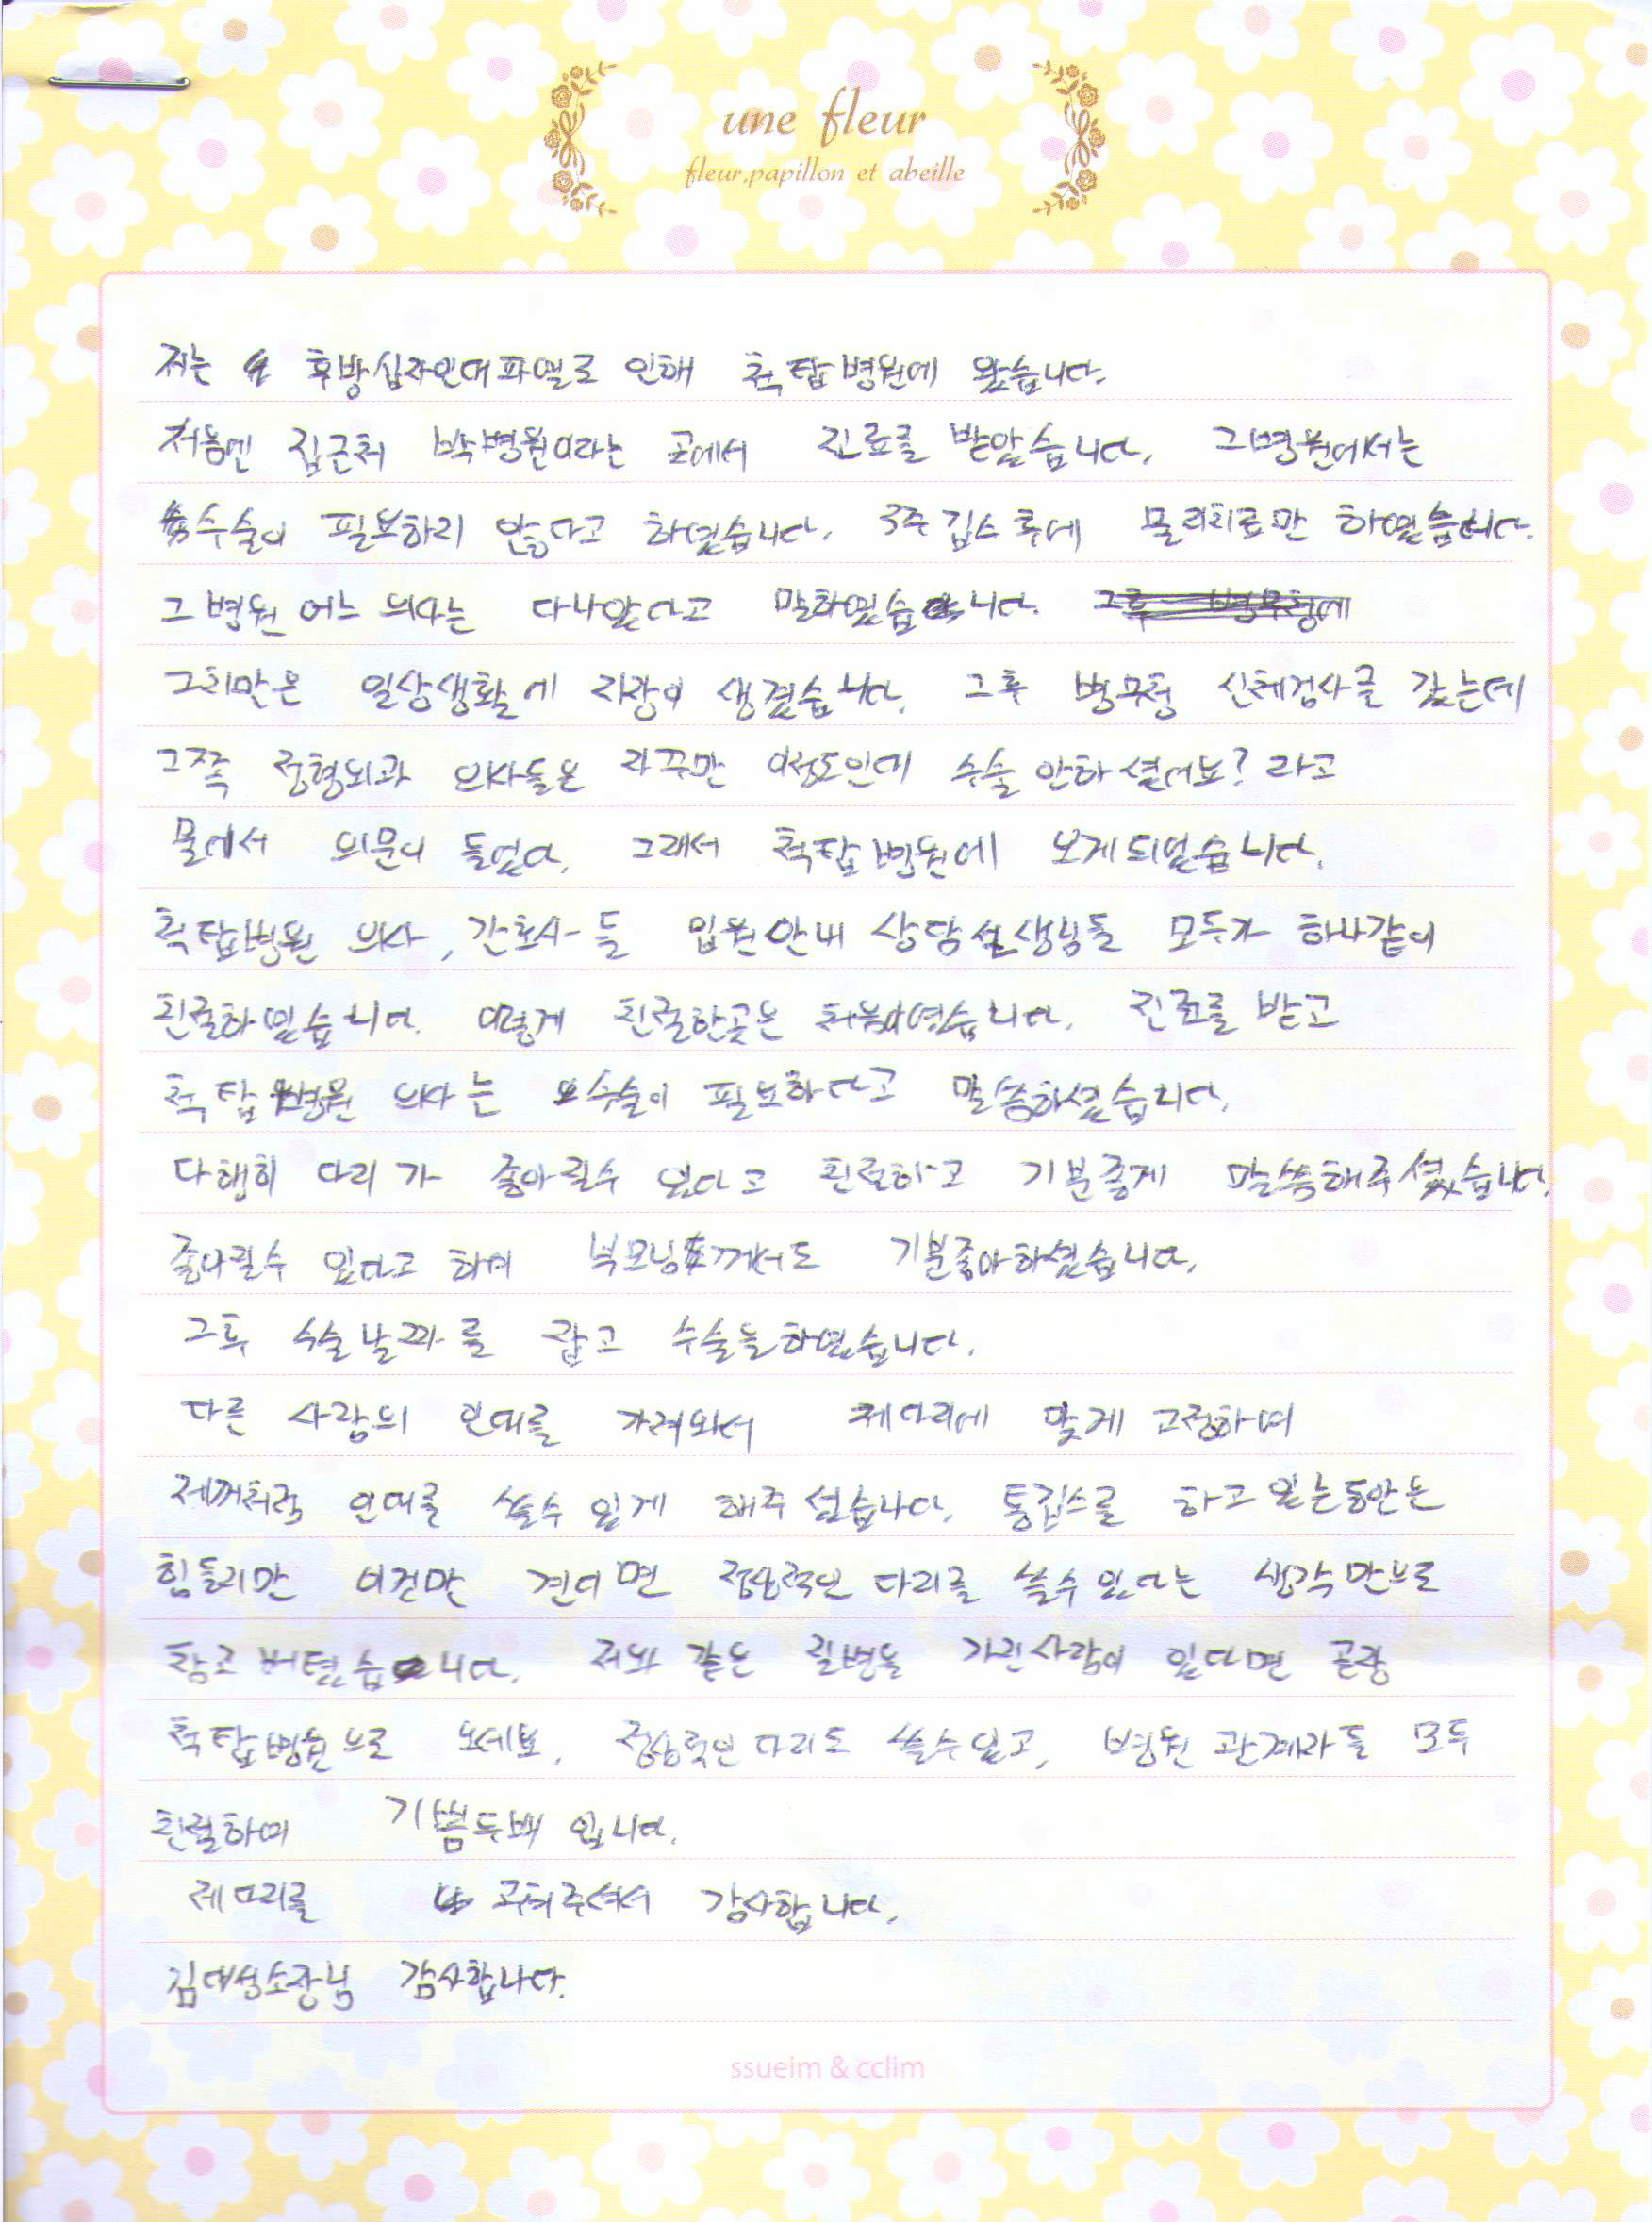 une fleur
fleur.papillon et abeille
저는 후방십자인대파열로 인해 척탑병원에 왔습니다.
처음엔 집근처 박병원이라는 곳에서 진료를 받았습니다. 그병원에서는
수술이 필요하지 않다고 하였습니다. 3주 깁스 후에 물리치료만 하였습니다.
그 병원 어느 의사는 다나았다고 말하였습니다. 그후 병무청에
그치만은 일상생활에 지장이 생겼습니다. 그후 병무청 신체검사를 갔는데
그쪽 정형외과 의사들은 자꾸만 이정도인데 수술 안하셨어요? 라고
물에서 의문이 들었다. 그래서 척탑병원에 오게되었습니다.
척탑병원 의사, 간호사들 입원안내 상담선생님들 모두가 하나같이
친절하였습니다. 이렇게 친절한곳은 처음이였습니다. 진료를 받고
척탑병원 의사는 수술이 필요하다고 말씀하셨습니다.
다행히 다리가 좋아질수 있다고 친절하고 기분좋게 말씀해주셨습니다.
좋아질수 있다고 하여 부모님께서도 기분좋아하셨습니다.
그후 수술날짜를 잡고 수술을하였습니다.
다른 사람의 인대를 가져와서 제다리에 맞게 고정하여
제꺼처럼 인대를 쓸수 있게 해주셨습니다. 통깁스를 하고있는동안은
힘들지만 이것만 견디면 정상적인 다리를 쓸수있다는 생각만으로
참고 버텼습니다. 저와 같은 질병을 가진사람이 있다면 곧장
척탑병원으로 오세요. 정상적인다리도 쓸수있고, 병원 관계자들 모두
친절하여 기쁨두배 입니다.
제다리를 고쳐주셔서 감사합니다.
김대성소장님 감사합니다.
ssueim & cclim